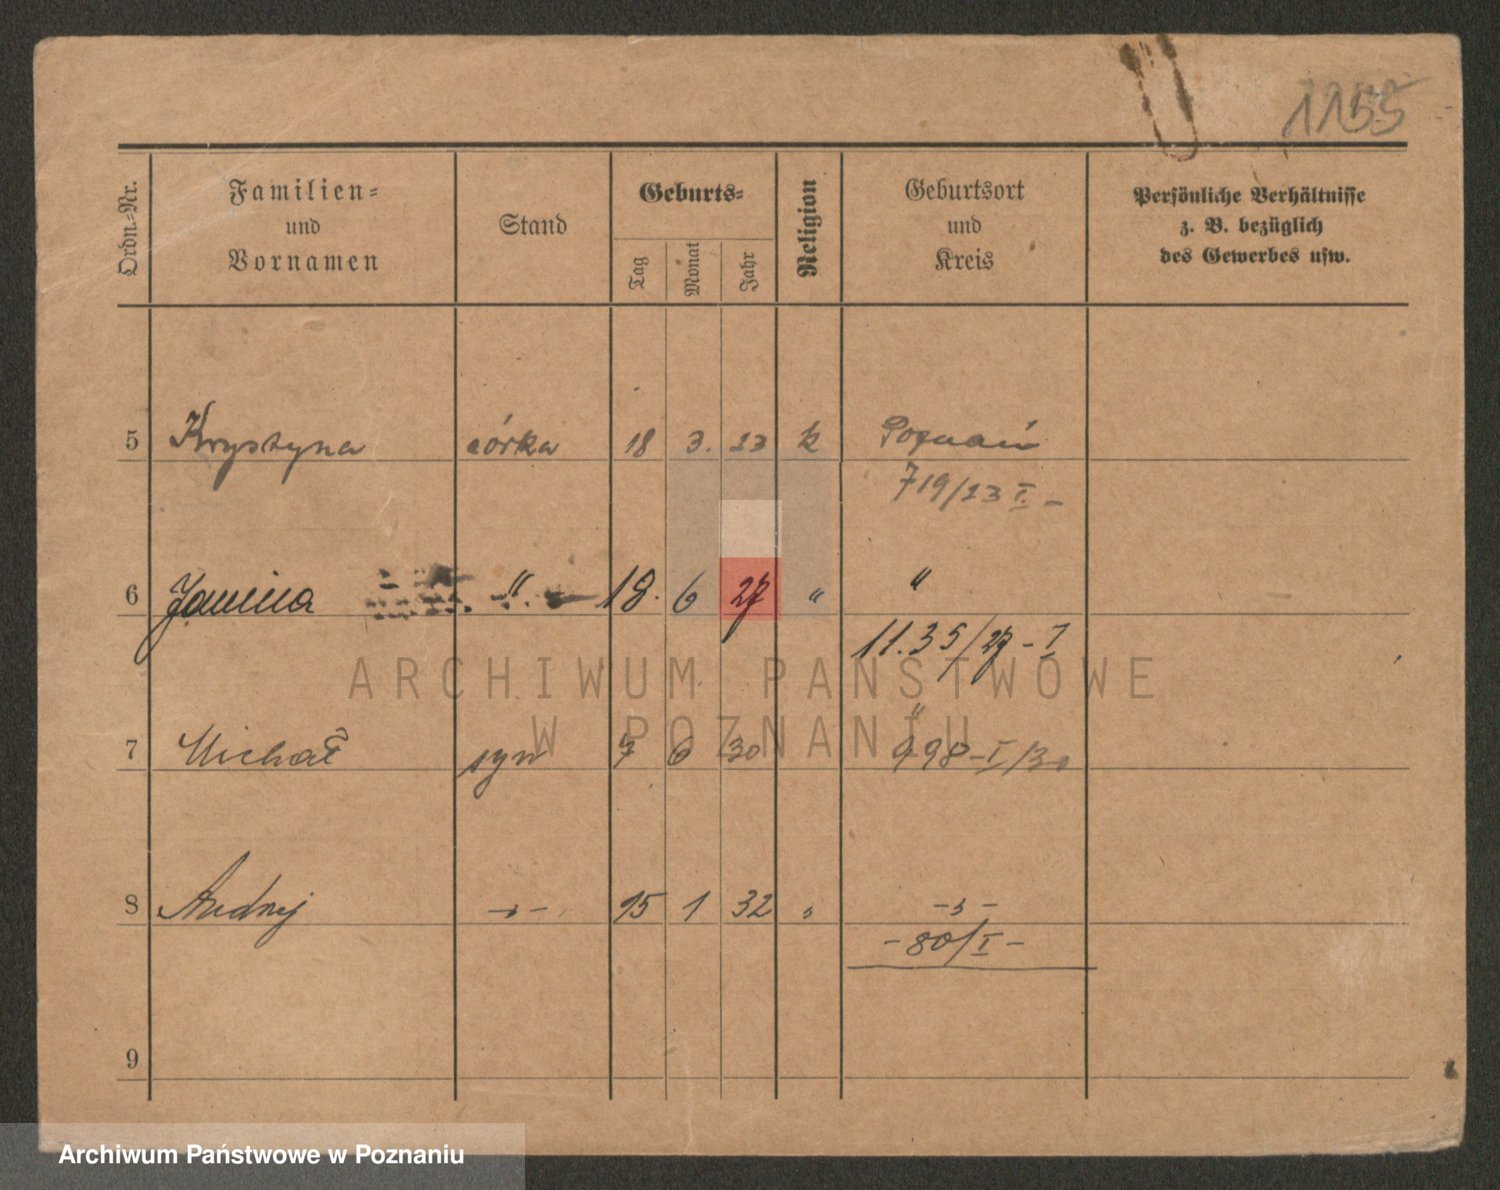 1155
Ordn.-Nr.
Familien-
und
Vornamen
Stand
Geburts-
Tag
Monat
Jahr
Religion
Geburtsort
und
Kreis
Persönliche Verhältnisse
z. B. bezüglich
des Gewerbes usw.
5 Krystyna córka 18 3. 23 k Poznań
719/23 I. -
6 Janina " 18. 6 27 " "
1135/27 - I
ARCHIWUM PAŃSTWOWE
W POZNANIU
"
7 Michał syn 7 6 30 998-I/30
8 Andrzej -"- 15 1 32 " -"-
-80/I-
9
Archiwum Państwowe w Poznaniu